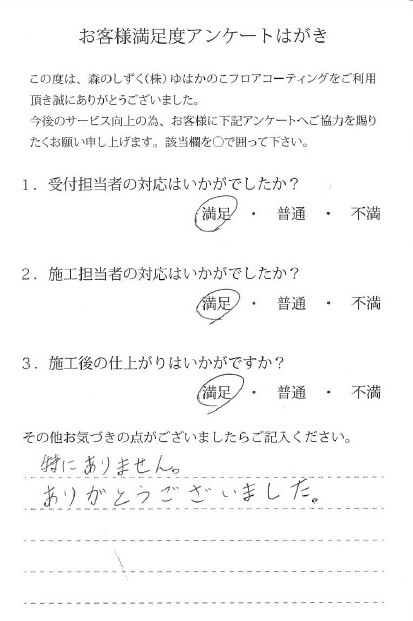 お客様満足度アンケートはがき
この度は、森のしずく(株)ゆはかのこフロアコーティングをご利用
頂き誠にありがとうございました。
今後のサービス向上の為、お客様に下記アンケートへご協力を賜り
たくお願い申し上げます。該当欄を○で囲って下さい。
1. 受付担当者の対応はいかがでしたか？
満足 ・ 普通 ・ 不満
2. 施工担当者の対応はいかがでしたか？
満足 ・ 普通 ・ 不満
3. 施工後の仕上がりはいかがですか？
満足 ・ 普通 ・ 不満
その他お気づきの点がございましたらご記入ください。
特にありません。
ありがとうございました。